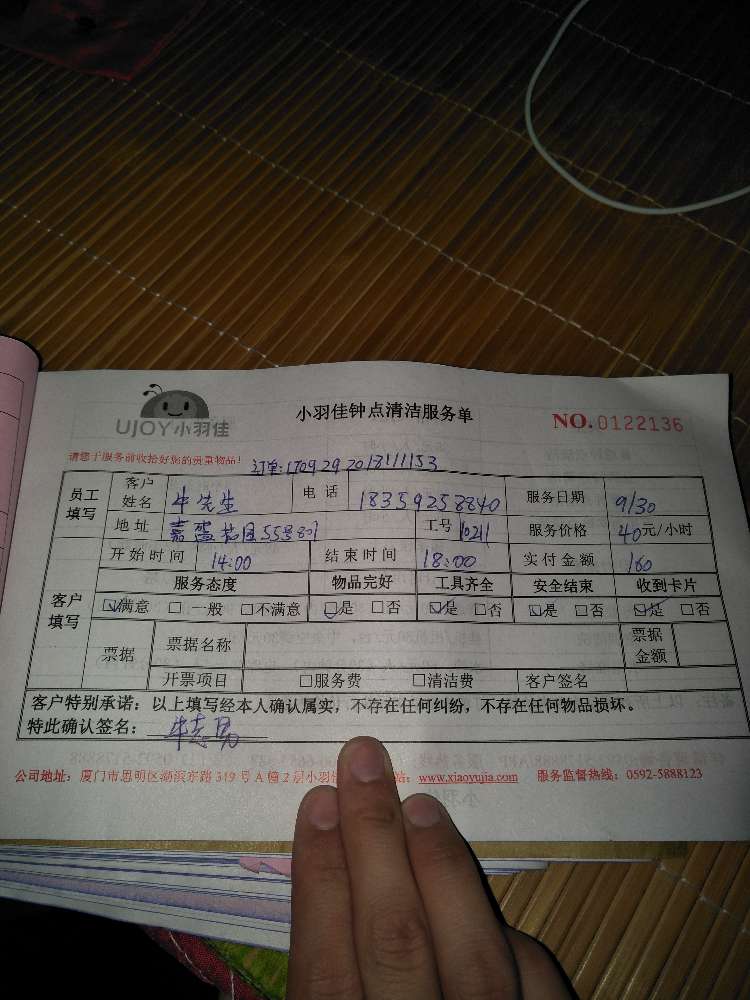 UJOY小羽佳
小羽佳钟点清洁服务单
NO.0122136
请您于服务前收拾好您的贵重物品!
订单:170929 2018111153
员工填写 客户姓名 牛先生 电话 18359258840 服务日期 9/30
地址 嘉盛花园55号801 工号 10211 服务价格 40元/小时
客户填写 开始时间 14:00 结束时间 18:00 实付金额 160
服务态度 物品完好 工具齐全 安全结束 收到卡片
☑满意 □一般 □不满意 ☑是 □否 ☑是 □否 ☑是 □否 ☑是 □否
票据 票据名称 票据金额
开票项目 □服务费 □清洁费 客户签名
客户特别承诺:以上填写经本人确认属实,不存在任何纠纷,不存在任何物品损坏。
特此确认签名: 牛志勇
公司地址:厦门市思明区湖滨东路319号A幢2层小羽佳 站:www.xiaoyujia.com 服务监督热线:0592-5888123